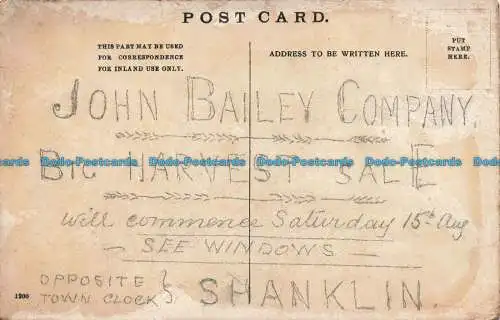 POST CARD.
THIS PART MAY BE USED
FOR CORRESPONDENCE
FOR INLAND USE ONLY.
ADDRESS TO BE WRITTEN HERE.
PUT
STAMP
HERE.
JOHN BAILEY COMPANY.
Dodo-Postcards Dodo-Postcards Dodo-Postcards Dodo-Postcards
BIG HARVEST SALE
will commence Saturday 15th Aug
— SEE WINDOWS —
OPPOSITE
TOWN CLOCK } SHANKLIN.
1200